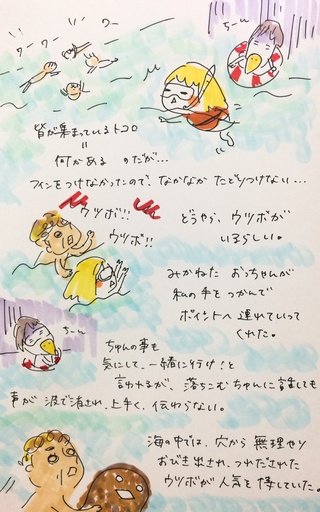 ワー
ワーワー
ちーん
皆が集まっているトコロ
=
何かある のだが…
フィンをつけなかったので、なかなか たどりつけない…
ウツボ!!
ウツボ!!
どうやら、ウツボが
いるらしい。
みかねた おっちゃんが
私の手をつかんで
ポイントへ 連れていって
くれた。
ちーん
ちゅんの事も
気にして、一緒に行け!と
言われるが、落ちこむちゅんに話しても
声が 波で消され、上手く、伝わらない。
海の中では、穴から 無理やり
おびき出され、つれだされた
ウツボが人気を 博していた。